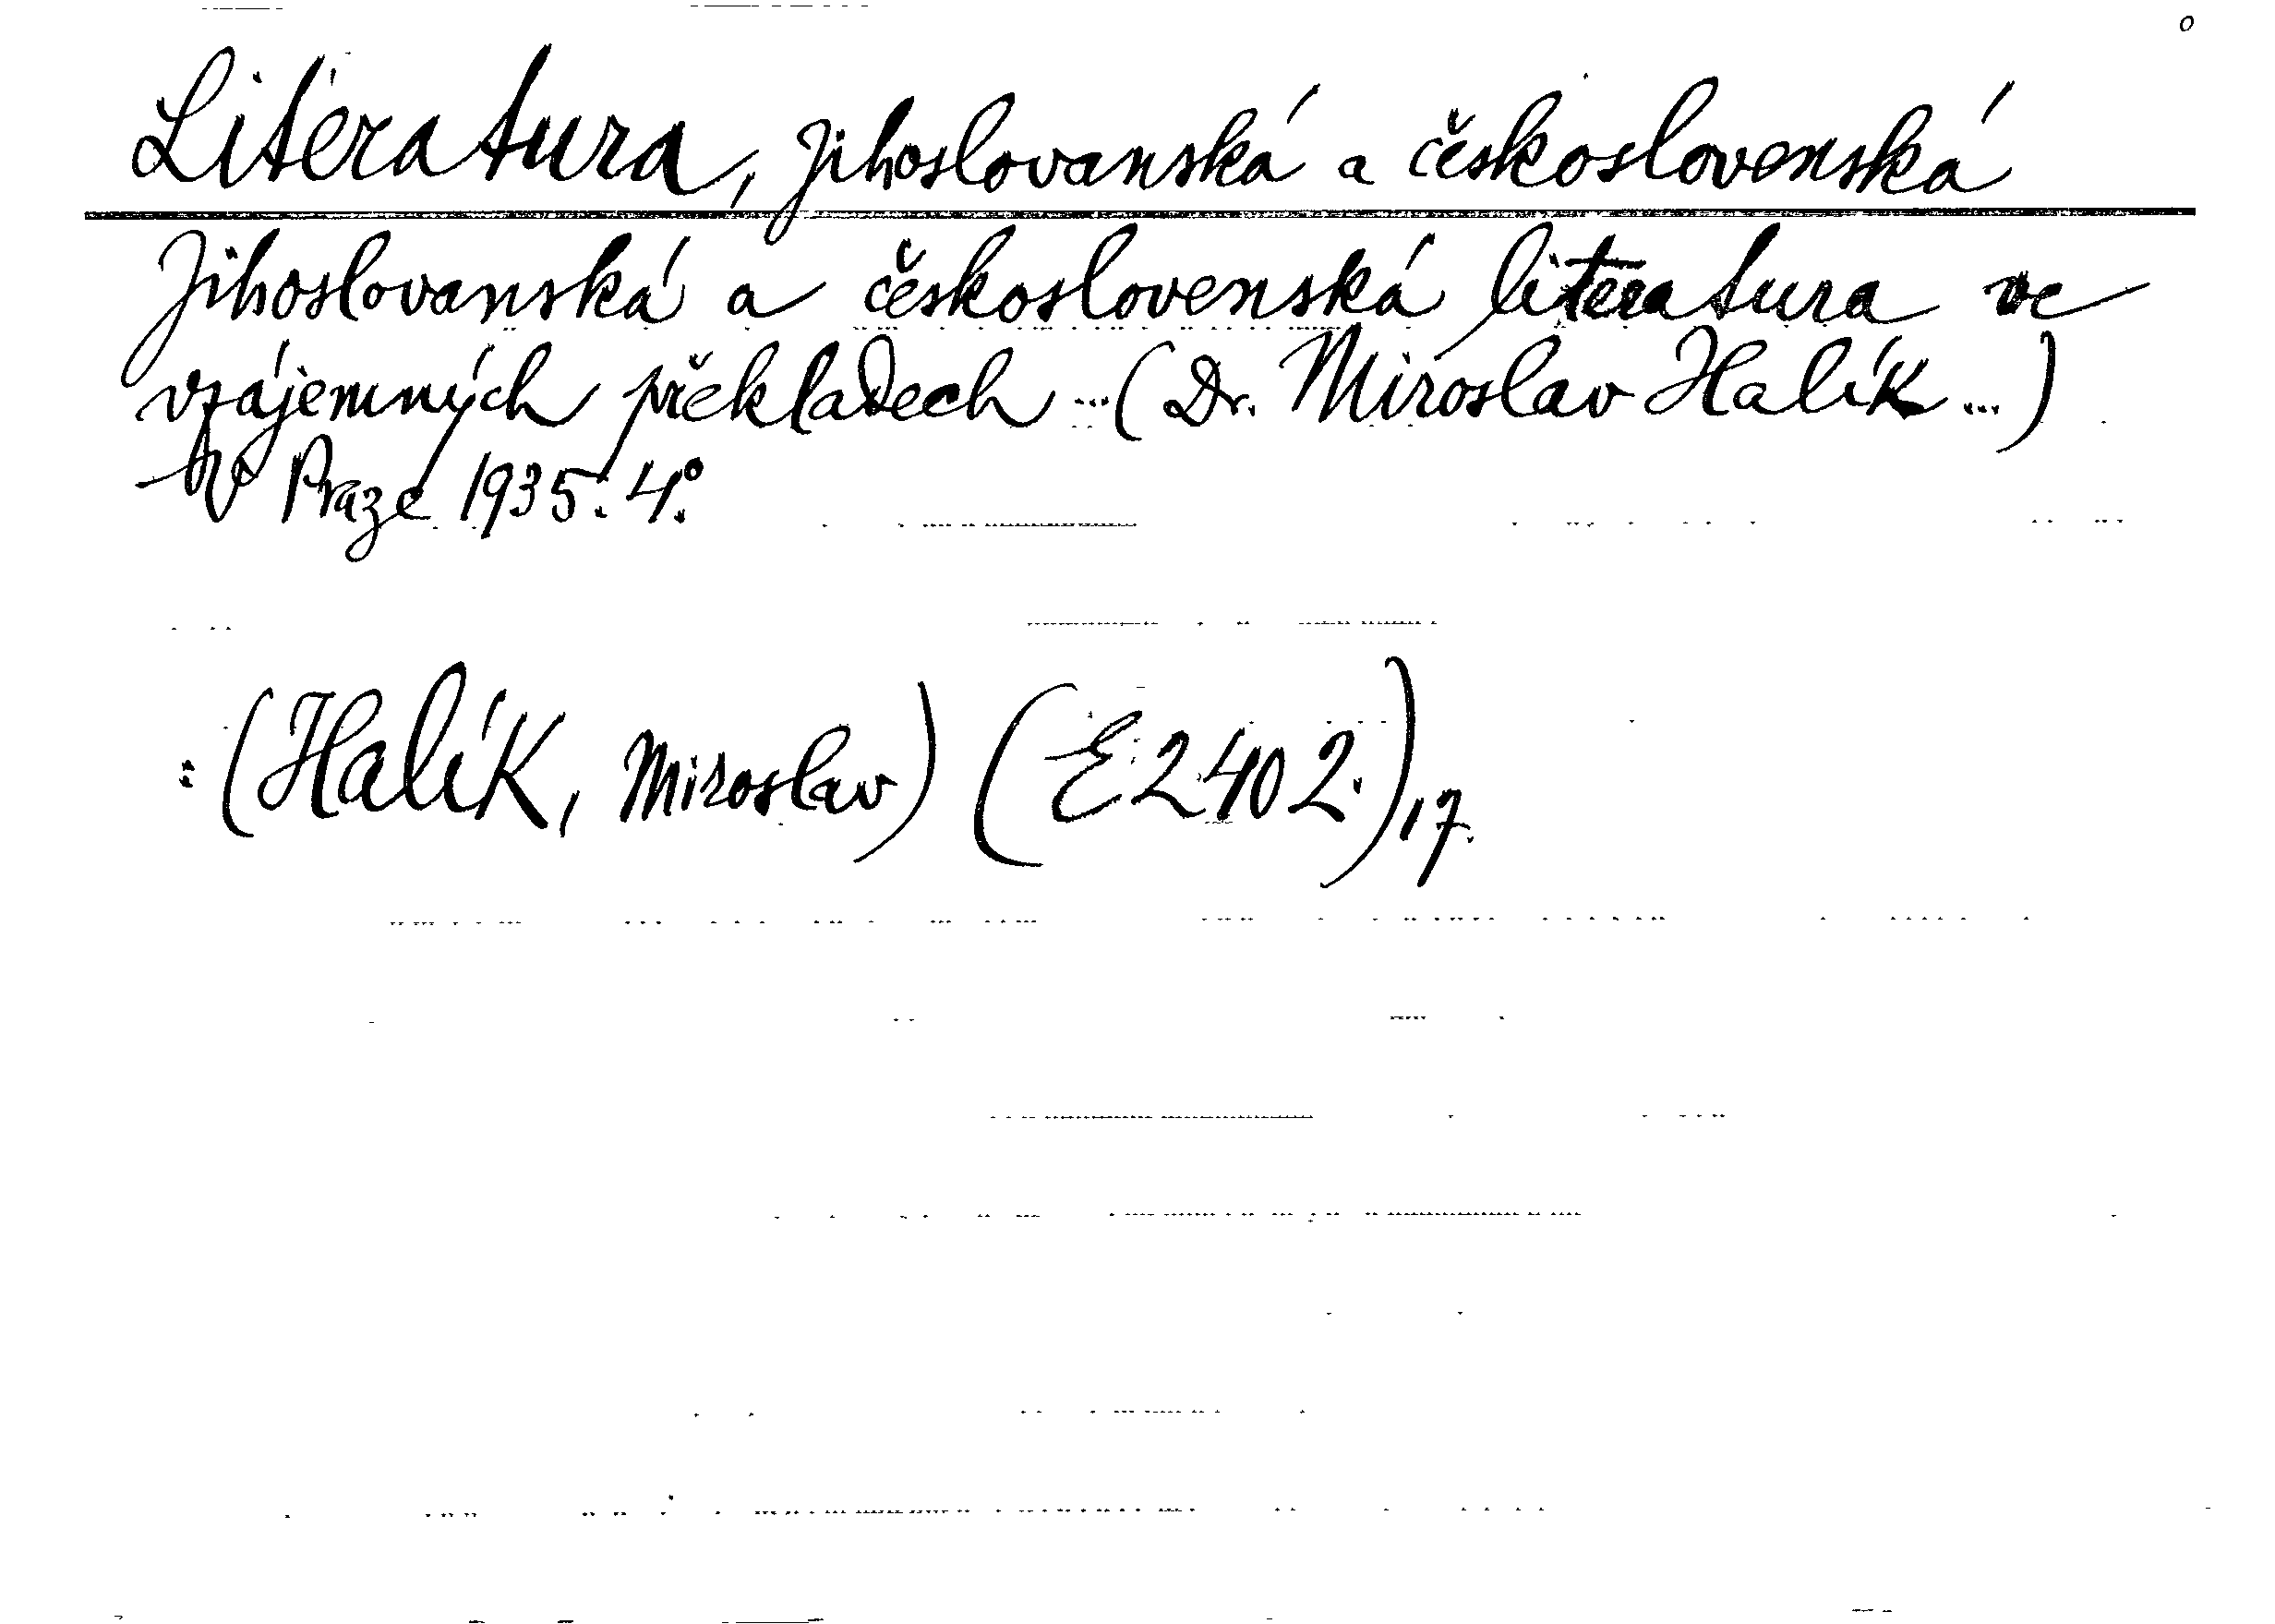 Literatura, jihoslovanská a československá
Jihoslovanská a československá literatura ve
vzájemných překladech ... (Dr. Miroslav Halík ...)
V Praze 1935. 4°.
: (Halík, Miroslav) (E 2402.),17.